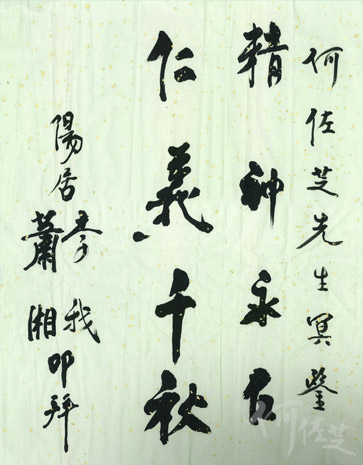 何佐芝先生冥鑒
精神永在
仁義千秋
陽居
李我
蕭湘
叩拜
何佐芝